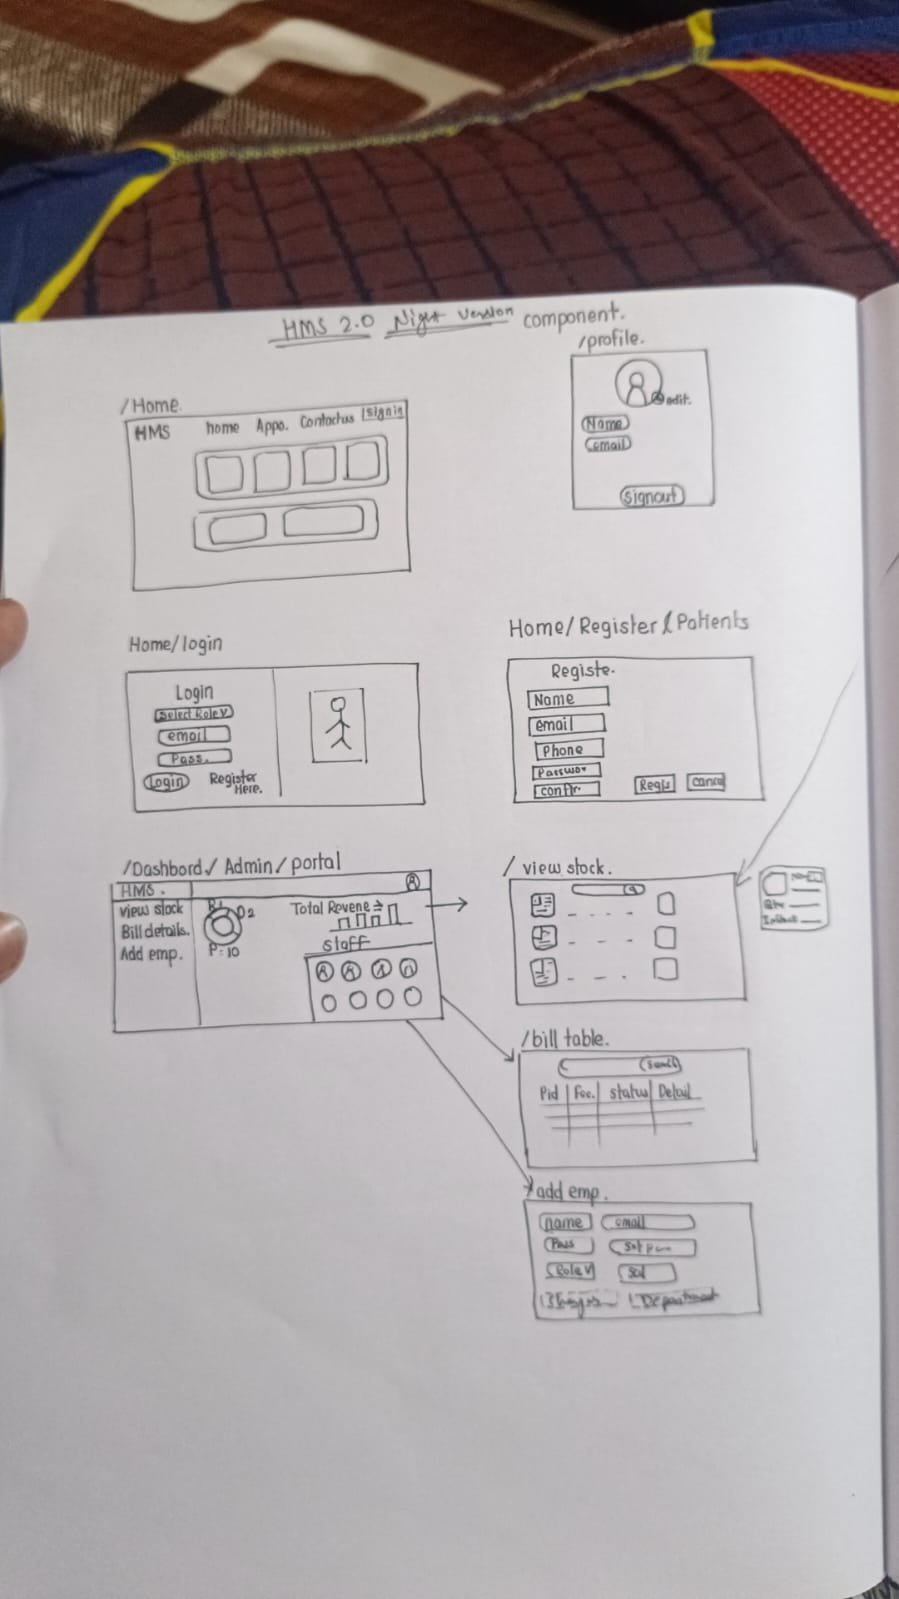 HMS 2.0 Night Version component.
/profile.
edit.
Name
email
Signout
/Home.
HMS home Appo. Contactus Signin
Home/login
Login
Select Role
email
Pass.
Login Register
Here.
Home/Register/Patients
Registe.
Name
email
Phone
Passwo
confir.
Regis Cancel
/Dashbord/Admin/portal
HMS.
view stock
Bill details.
Add emp.
D2
P:10
Total Revene
staff
/ view stock.
/bill table.
Pid Fee. status Detail
/add emp.
name email
Pass
Role Sal
Department